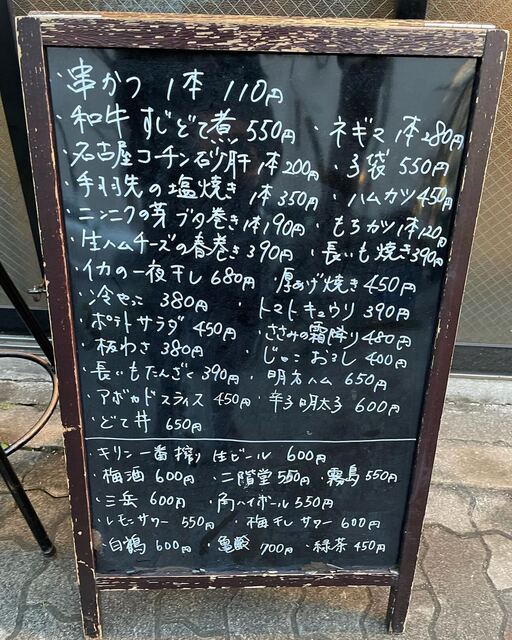 ・串かつ 1本 110円
・和牛 すじどて煮 550円 ・ネギマ 1本280円
・名古屋コーチン砂肝 1本200円 ・3袋 550円
・手羽先の塩焼き 1本350円 ・ハムカツ 450円
・ニンニクの芽 ブタ巻き 1本190円 ・もちガツ 1本120円
・生ハムチーズの春巻き 390円 ・長いも焼き390円
・イカの一夜干し 680円 厚あげ焼き 450円
・冷やっこ 380円 ・トマトキュウリ 390円
・ポテトサラダ 450円 ・ささみの霜降り 480円
・板わさ 380円 ・じゃこおろし 400円
・長いもたんざく 390円 ・明太ハム 650円
・アボカドスライス 450円 ・辛子明太子 600円
・どて丼 650円
・キリン一番搾り 生ビール 600円
・梅酒 600円 ・二階堂 550円 ・霧島 550円
・三岳 600円 ・角ハイボール 550円
・レモンサワー 550円 ・梅干しサワー 600円
・白鶴 600円 亀齢 700円 ・緑茶 450円